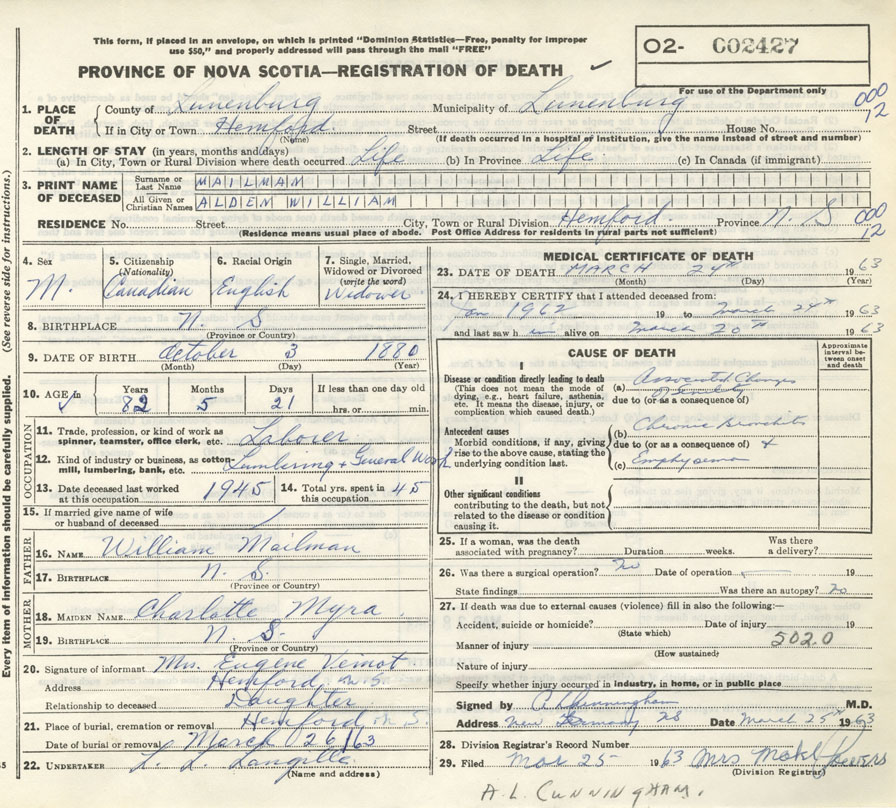 This form, if placed in an envelope, on which is printed "Dominion Statistics—Free, penalty for improper
use $50," and properly addressed will pass through the mail "FREE"
PROVINCE OF NOVA SCOTIA—REGISTRATION OF DEATH
O2- 002427
For use of the Department only
1. PLACE OF DEATH
County of Lunenburg Municipality of Lunenburg 000
If in City or Town Hemford. Street House No. 12
(Name) (If death occurred in a hospital or institution, give the name instead of street and number)
2. LENGTH OF STAY (in years, months and days)
(a) In City, Town or Rural Division where death occurred Life (b) In Province Life (c) In Canada (if immigrant)
3. PRINT NAME OF DECEASED
Surname or Last Name MAILMAN
All Given or Christian Names ALDEN WILLIAM
RESIDENCE No. Street City, Town or Rural Division Hemford. Province N. S 000
(Residence means usual place of abode. Post Office Address for residents in rural parts not sufficient) 12
4. Sex M.
5. Citizenship (Nationality) Canadian
6. Racial Origin English
7. Single, Married, Widowed or Divorced (write the word) Widower
8. BIRTHPLACE N. S
(Province or Country)
9. DATE OF BIRTH October 3 1880
(Month) (Day) (Year)
10. AGE in Years 82 Months 5 Days 21 If less than one day old hrs. or min.
OCCUPATION
11. Trade, profession, or kind of work as spinner, teamster, office clerk, etc. Laborer
12. Kind of industry or business, as cotton-mill, lumbering, bank, etc. Lumbering + General Work
13. Date deceased last worked at this occupation 1945
14. Total yrs. spent in this occupation 45
15. If married give name of wife or husband of deceased
FATHER
16. NAME William Mailman
17. BIRTHPLACE N. S.
(Province or Country)
MOTHER
18. MAIDEN NAME Charlotte Myra
19. BIRTHPLACE N. S.
(Province or Country)
20. Signature of informant Mrs. Eugene Veinot
Address Hemford, N.S.
Relationship to deceased Daughter
21. Place of burial, cremation or removal Hemford N. S.
Date of burial or removal March 26/63
22. UNDERTAKER L. L. Langille
(Name and address)
Every item of information should be carefully supplied. (See reverse side for instructions.)
MEDICAL CERTIFICATE OF DEATH
23. DATE OF DEATH MARCH 24th 1963
(Month) (Day) (Year)
24. I HEREBY CERTIFY that I attended deceased from:
Jan 1962 19 to March 24th 1963
and last saw him alive on March 20th 1963
CAUSE OF DEATH
Approximate interval between onset and death
I
Disease or condition directly leading to death
(This does not mean the mode of dying, e.g., heart failure, asthenia, etc. It means the disease, injury, or complication which caused death.)
(a) Associated Changes of Senility
due to (or as a consequence of)
Antecedent causes
Morbid conditions, if any, giving rise to the above cause, stating the underlying condition last.
(b) Chronic Bronchitis
due to (or as a consequence of) +
(c) Emphysema
II
Other significant conditions
contributing to the death, but not related to the disease or condition causing it.
25. If a woman, was the death associated with pregnancy? Duration weeks. Was there a delivery?
26. Was there a surgical operation? No Date of operation 19
State findings Was there an autopsy? No
27. If death was due to external causes (violence) fill in also the following:—
Accident, suicide or homicide? Date of injury 19
(State which) 5020
Manner of injury
(How sustained)
Nature of injury
Specify whether injury occurred in industry, in home, or in public place
Signed by A L Cunningham M.D.
Address New Germany NS Date March 25th 1963
28. Division Registrar's Record Number
29. Filed Mar 25- 1963 Mrs
(Division Registrar)
A.L. CUNNINGHAM.